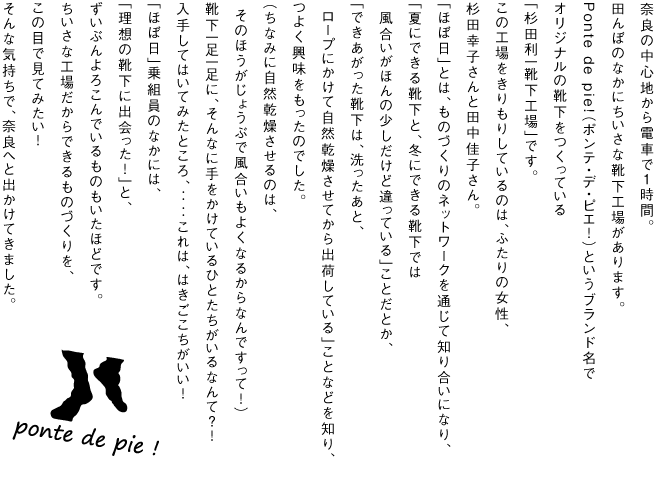 奈良の中心地から電車で1時間。
田んぼのなかにちいさな靴下工場があります。
Ponte de pie!（ポンテ・デ・ピエ！）というブランド名で
オリジナルの靴下をつくっている
「杉田利一靴下工場」です。
この工場をきりもりしているのは、ふたりの女性、
杉田幸子さんと田中佳子さん。
「ほぼ日」とは、ものづくりのネットワークを通じて知り合いになり、
「夏にできる靴下と、冬にできる靴下では
風合いがほんの少しだけど違っている」ことだとか、
「できあがった靴下は、洗ったあと、
ロープにかけて自然乾燥させてから出荷している」ことなどを知り、
つよく興味をもったのでした。
（ちなみに自然乾燥させるのは、
そのほうがじょうぶで風合いもよくなるからなんですって！）
靴下一足一足に、そんなに手をかけているひとたちがいるなんて？！
入手してはいてみたところ、・・・・これは、はきごこちがいい！
「ほぼ日」乗組員のなかには、
「理想の靴下に出会った！」と、
ずいぶんよろこんでいるものもいたほどです。
ちいさな工場だからできるものづくりを、
この目で見てみたい！
そんな気持ちで、奈良へと出かけてきました。
ponte de pie !